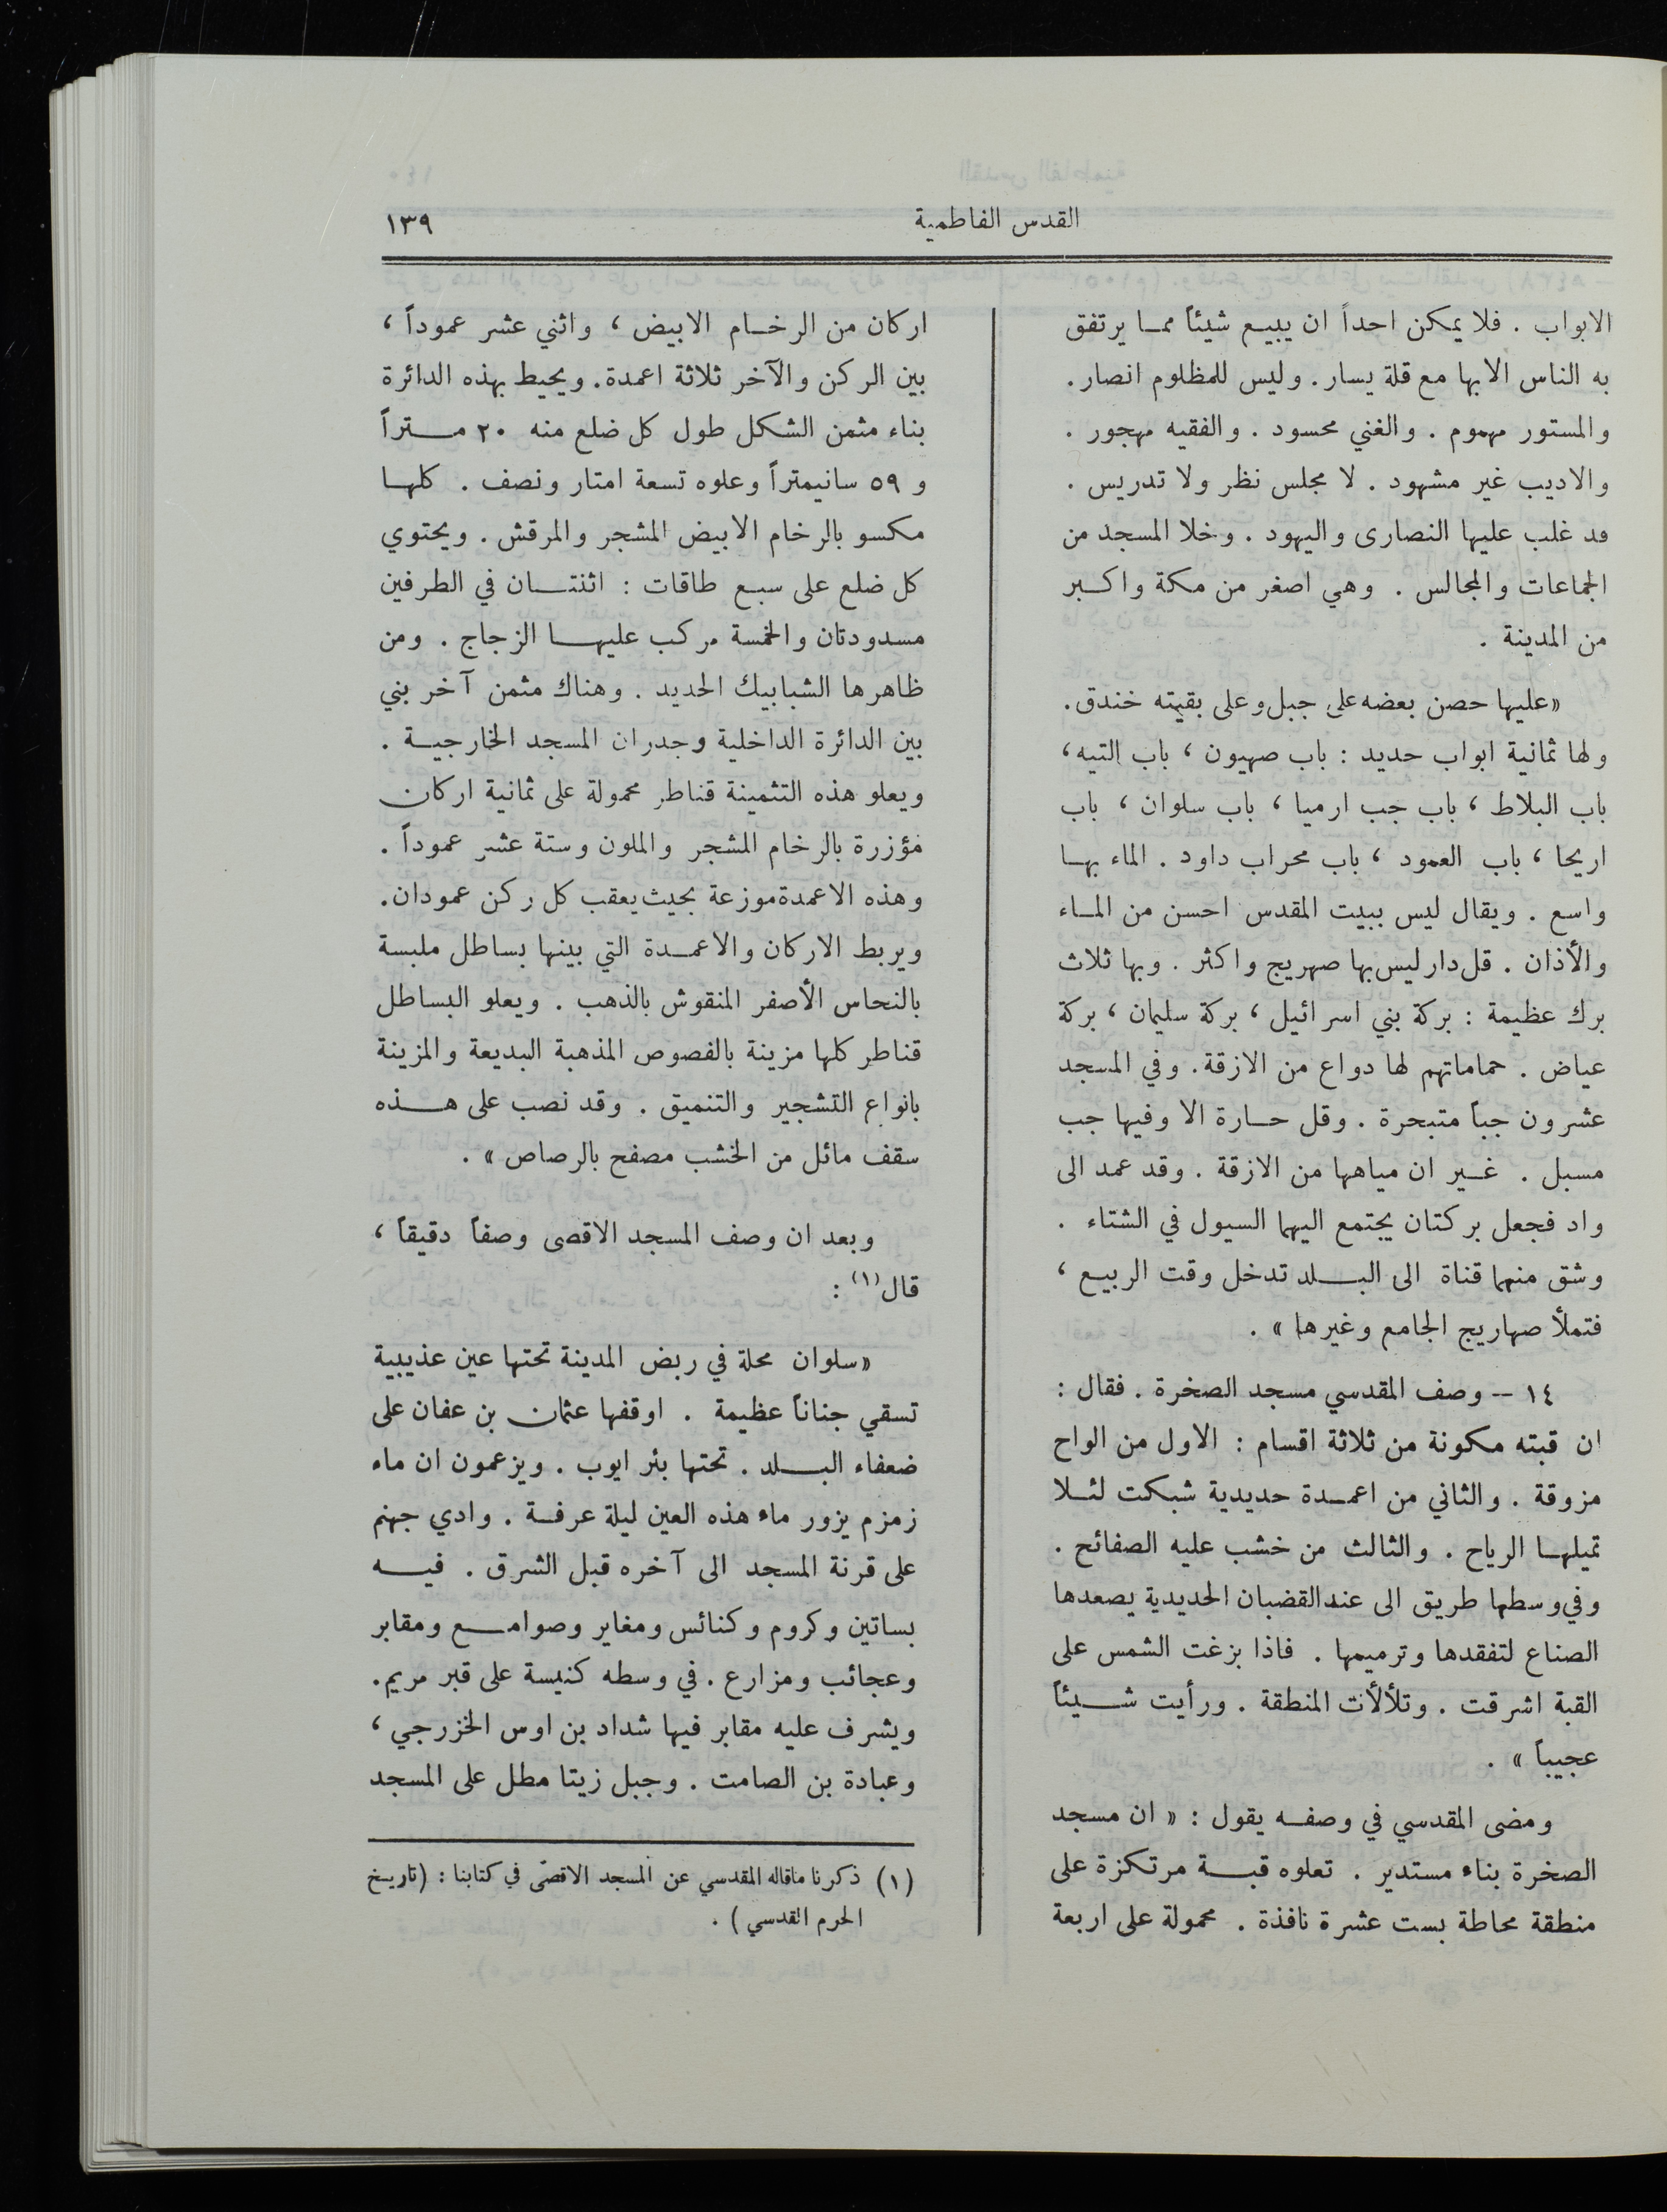 القدس الفاطمية
١٣٩
الابواب . فلا يمكن احداً ان يبيع شيئاً مما يرتفق
به الناس الا بها مع قلة يسار. وليس للمظلوم انصار.
والمستور مهموم . والغني محسود . والفقيه مهجور .
والاديب غير مشهود . لا مجلس نظر ولا تدريس .
قد غلب عليها النصارى واليهود . وخلا المسجد من
الجماعات والمجالس . وهي اصغر من مكة واكبر
من المدينة .
«عليها حصن بعضه على جبل وعلى بقيته خندق.
ولها ثمانية ابواب حديد : باب صهيون ، باب التيه،
باب البلاط ، باب جب ارميا ، باب سلوان ، باب
اريحا ، باب العمود ، باب محراب داود . الماء بها
واسع . ويقال ليس ببيت المقدس احسن من الماء
والأذان . قل دار ليس بها صهريج واكثر . وبها ثلاث
برك عظيمة : بركة بني اسرائيل ، بركة سليمان ، بركة
عياض . حماماتهم لها دواع من الازقة. وفي المسجد
عشرون جباً متبحرة . وقل حارة الا وفيها جب
مسبل . غير ان مياهها من الازقة . وقد عمد الى
واد فجعل بركتان يجتمع اليهما السيول في الشتاء .
وشق منهما قناة الى البلد تدخل وقت الربيع ،
فتملأ صهاريج الجامع وغيرها » .
١٤ – وصف المقدسي مسجد الصخرة . فقال :
ان قبته مكونة من ثلاثة اقسام : الاول من الواح
مزوقة . والثاني من اعمدة حديدية شبكت لئلا
تميلها الرياح . والثالث من خشب عليه الصفائح .
وفي وسطها طريق الى عند القضبان الحديدية يصعدها
الصناع لتفقدها وترميمها . فاذا بزغت الشمس على
القبة اشرقت . وتلألأت المنطقة . ورأيت شيئاً
عجيباً » .
ومضى المقدسي في وصفه يقول : « ان مسجد
الصخرة بناء مستدير . تعلوه قبة مرتكزة على
منطقة محاطة بست عشرة نافذة . محمولة على اربعة
اركان من الرخام الابيض ، واثني عشر عموداً ،
بين الركن والآخر ثلاثة اعمدة. ويحيط بهذه الدائرة
بناء مثمن الشكل طول كل ضلع منه ٢٠ متراً
و ٥٩ سانيمتراً وعلوه تسعة امتار ونصف . كلها
مكسو بالرخام الابيض المشجر والمرقش . ويحتوي
كل ضلع على سبع طاقات : اثنتان في الطرفين
مسدودتان والخمسة مركب عليها الزجاج . ومن
ظاهرها الشبابيك الحديد . وهناك مثمن آخر بني
بين الدائرة الداخلية وجدران المسجد الخارجية .
ويعلو هذه التثمينة قناطر محمولة على ثمانية اركان
مؤزرة بالرخام المشجر والملون وستة عشر عموداً .
وهذه الاعمدة موزعة بحيث يعقب كل ركن عمودان.
ويربط الاركان والاعمدة التي بينها بساطل ملبسة
بالنحاس الأصفر المنقوش بالذهب . ويعلو البساطل
قناطر كلها مزينة بالفصوص المذهبة البديعة والمزينة
بانواع التشجير والتنميق . وقد نصب على هذه
سقف مائل من الخشب مصفح بالرصاص » .
وبعد ان وصف المسجد الاقصى وصفاً دقيقاً ،
قال (١) :
«سلوان محلة في ربض المدينة تحتها عين عذيبية
تسقي جناناً عظيمة . اوقفها عثمان بن عفان على
ضعفاء البلد . تحتها بئر ايوب . ويزعمون ان ماء
زمزم يزور ماء هذه العين ليلة عرفة . وادي جهنم
على قرنة المسجد الى آخره قبل الشرق . فيه
بساتين وكروم وكنائس ومغاير وصوامع ومقابر
وعجائب ومزارع . في وسطه كنيسة على قبر مريم.
ويشرف عليه مقابر فيها شداد بن اوس الخزرجي ،
وعبادة بن الصامت . وجبل زيتا مطل على المسجد
(١) ذكرنا ماقاله المقدسي عن المسجد الاقصى في كتابنا : (تاريخ
الحرم القدسي) .